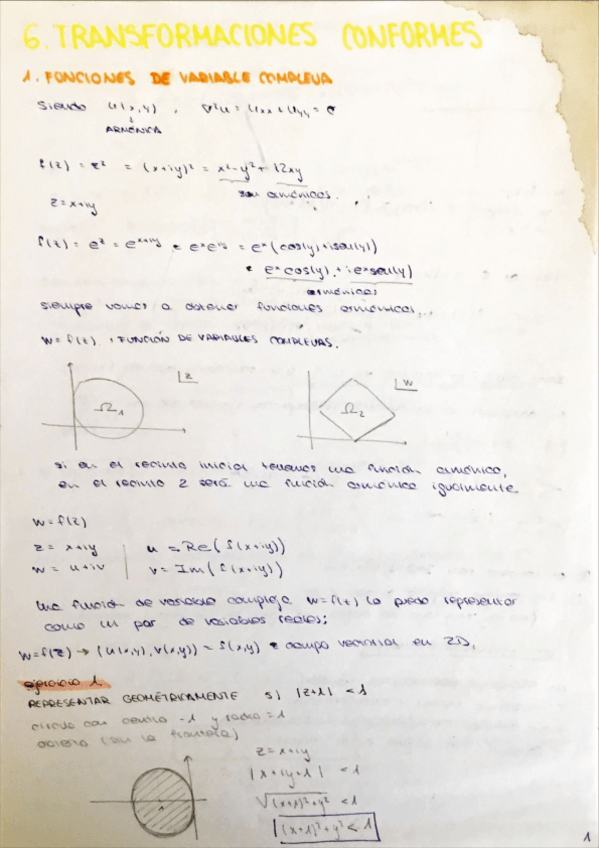 6. TRANSFORMACIONES CONFORMES
1. FUNCIONES DE VARIABLE COMPLEJA
Siendo u(x,y), ∇²u = uxx + uyy = 0
↓
ARMÓNICA
f(z) = z² = (x+iy)² = x²-y² + i2xy
son armónicas.
z = x+iy
f(z) = e^z = e^(x+iy) = e^x e^(iy) = e^x (cos(y) + isen(y))
= e^x cos(y) + i e^x sen(y)
armónicas
siempre vamos a obtener funciones armónicas.
w = f(z) . FUNCIÓN DE VARIABLES COMPLEJAS.
z
w
Ω1
Ω2
si en el recinto inicial tenemos una función armónica,
en el recinto 2 será una función armónica igualmente
w = f(z)
z = x+iy u = Re(f(x+iy))
w = u+iv v = Im(f(x+iy))
Una función de variable compleja w = f(z) la puedo representar
como un par de variables reales;
w = f(z) → (u(x,y), v(x,y)) = f(x,y) = campo vectorial en 2D.
ejercicio 1
REPRESENTAR GEOMÉTRICAMENTE |z+1| < 1
círculo con centro -1 y radio = 1
abierto (sin la frontera)
z = x+iy
|x+iy+1| < 1
√((x+1)²+y²) < 1
(x+1)²+y² < 1
1